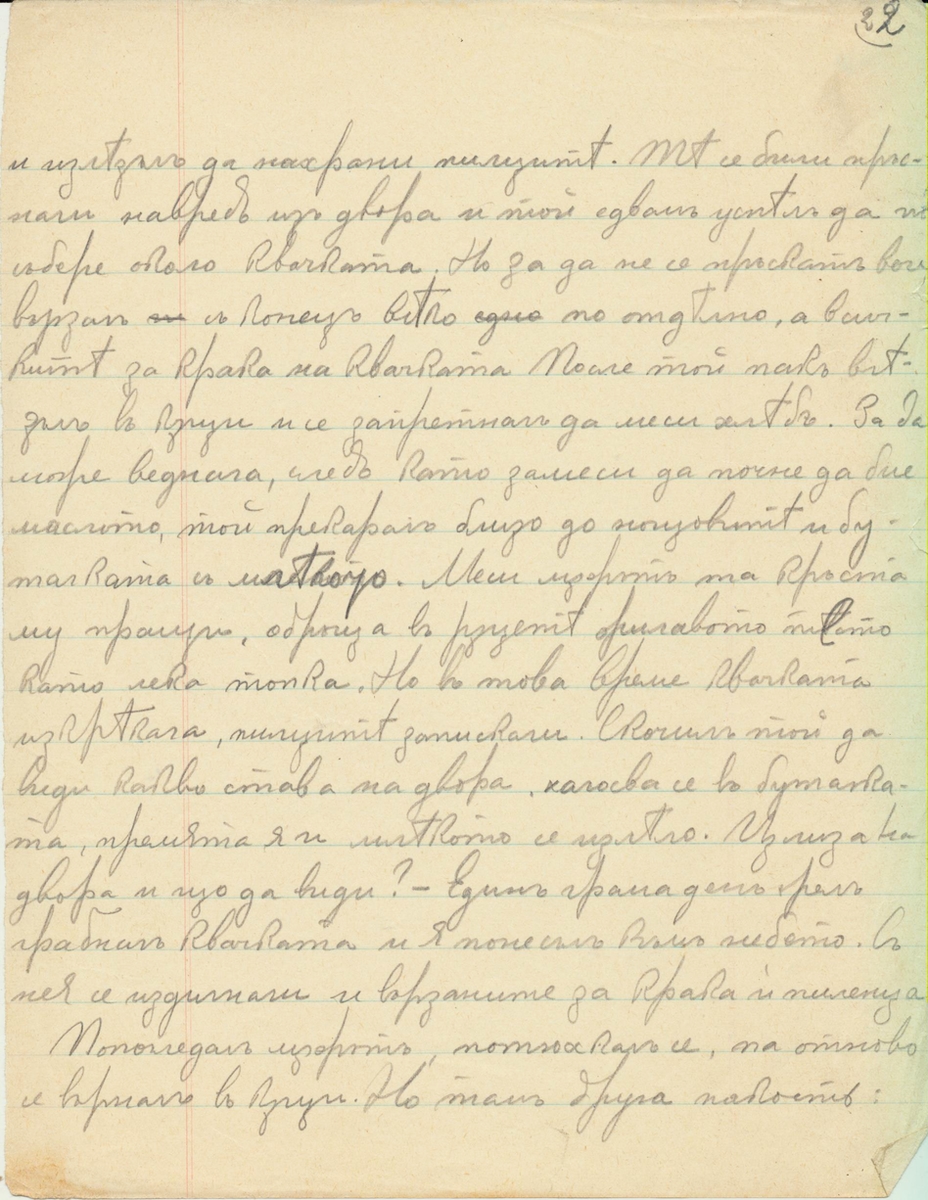 22
и излѣзълъ да нахрани пилцитѣ. Тѣ се били пръс-
нали навредъ изъ двора и той едвамъ успѣлъ да ги
събере около квачката. Но за да не се пръскатъ вече
вързалъ съ конецъ всѣко едно по отдѣлно, а всич-
китѣ за крака на квачката После той пакъ влѣ-
зълъ въ кущи и се запретналъ да меси хлѣбъ. За да
може веднага, следъ като замеси да почне да бие
маслото, той прекаралъ близо до нощовитѣ и бу-
талката съ млѣкото. Меси мѫжътъ та кръста
му пращи, обръща въ рѫцетѣ жилавото тѣсто
като лека топка. Но въ това време квачката
изкрѣкала, пилцитѣ запискали. Скочилъ той да
види какво става на двора, халосва се въ буталка-
та, премѣта я и млѣкото се излѣло. Излиза на
двора и що да види? – Единъ грамаденъ орелъ
грабналъ квачката и я понесълъ къмъ небето. Съ
нея се издигнали и вързаните за крака ѝ пиленца
Попогледалъ мѫжътъ, потюхкалъ се, па отново
се върналъ въ кущи. Но тамъ друга пакость: